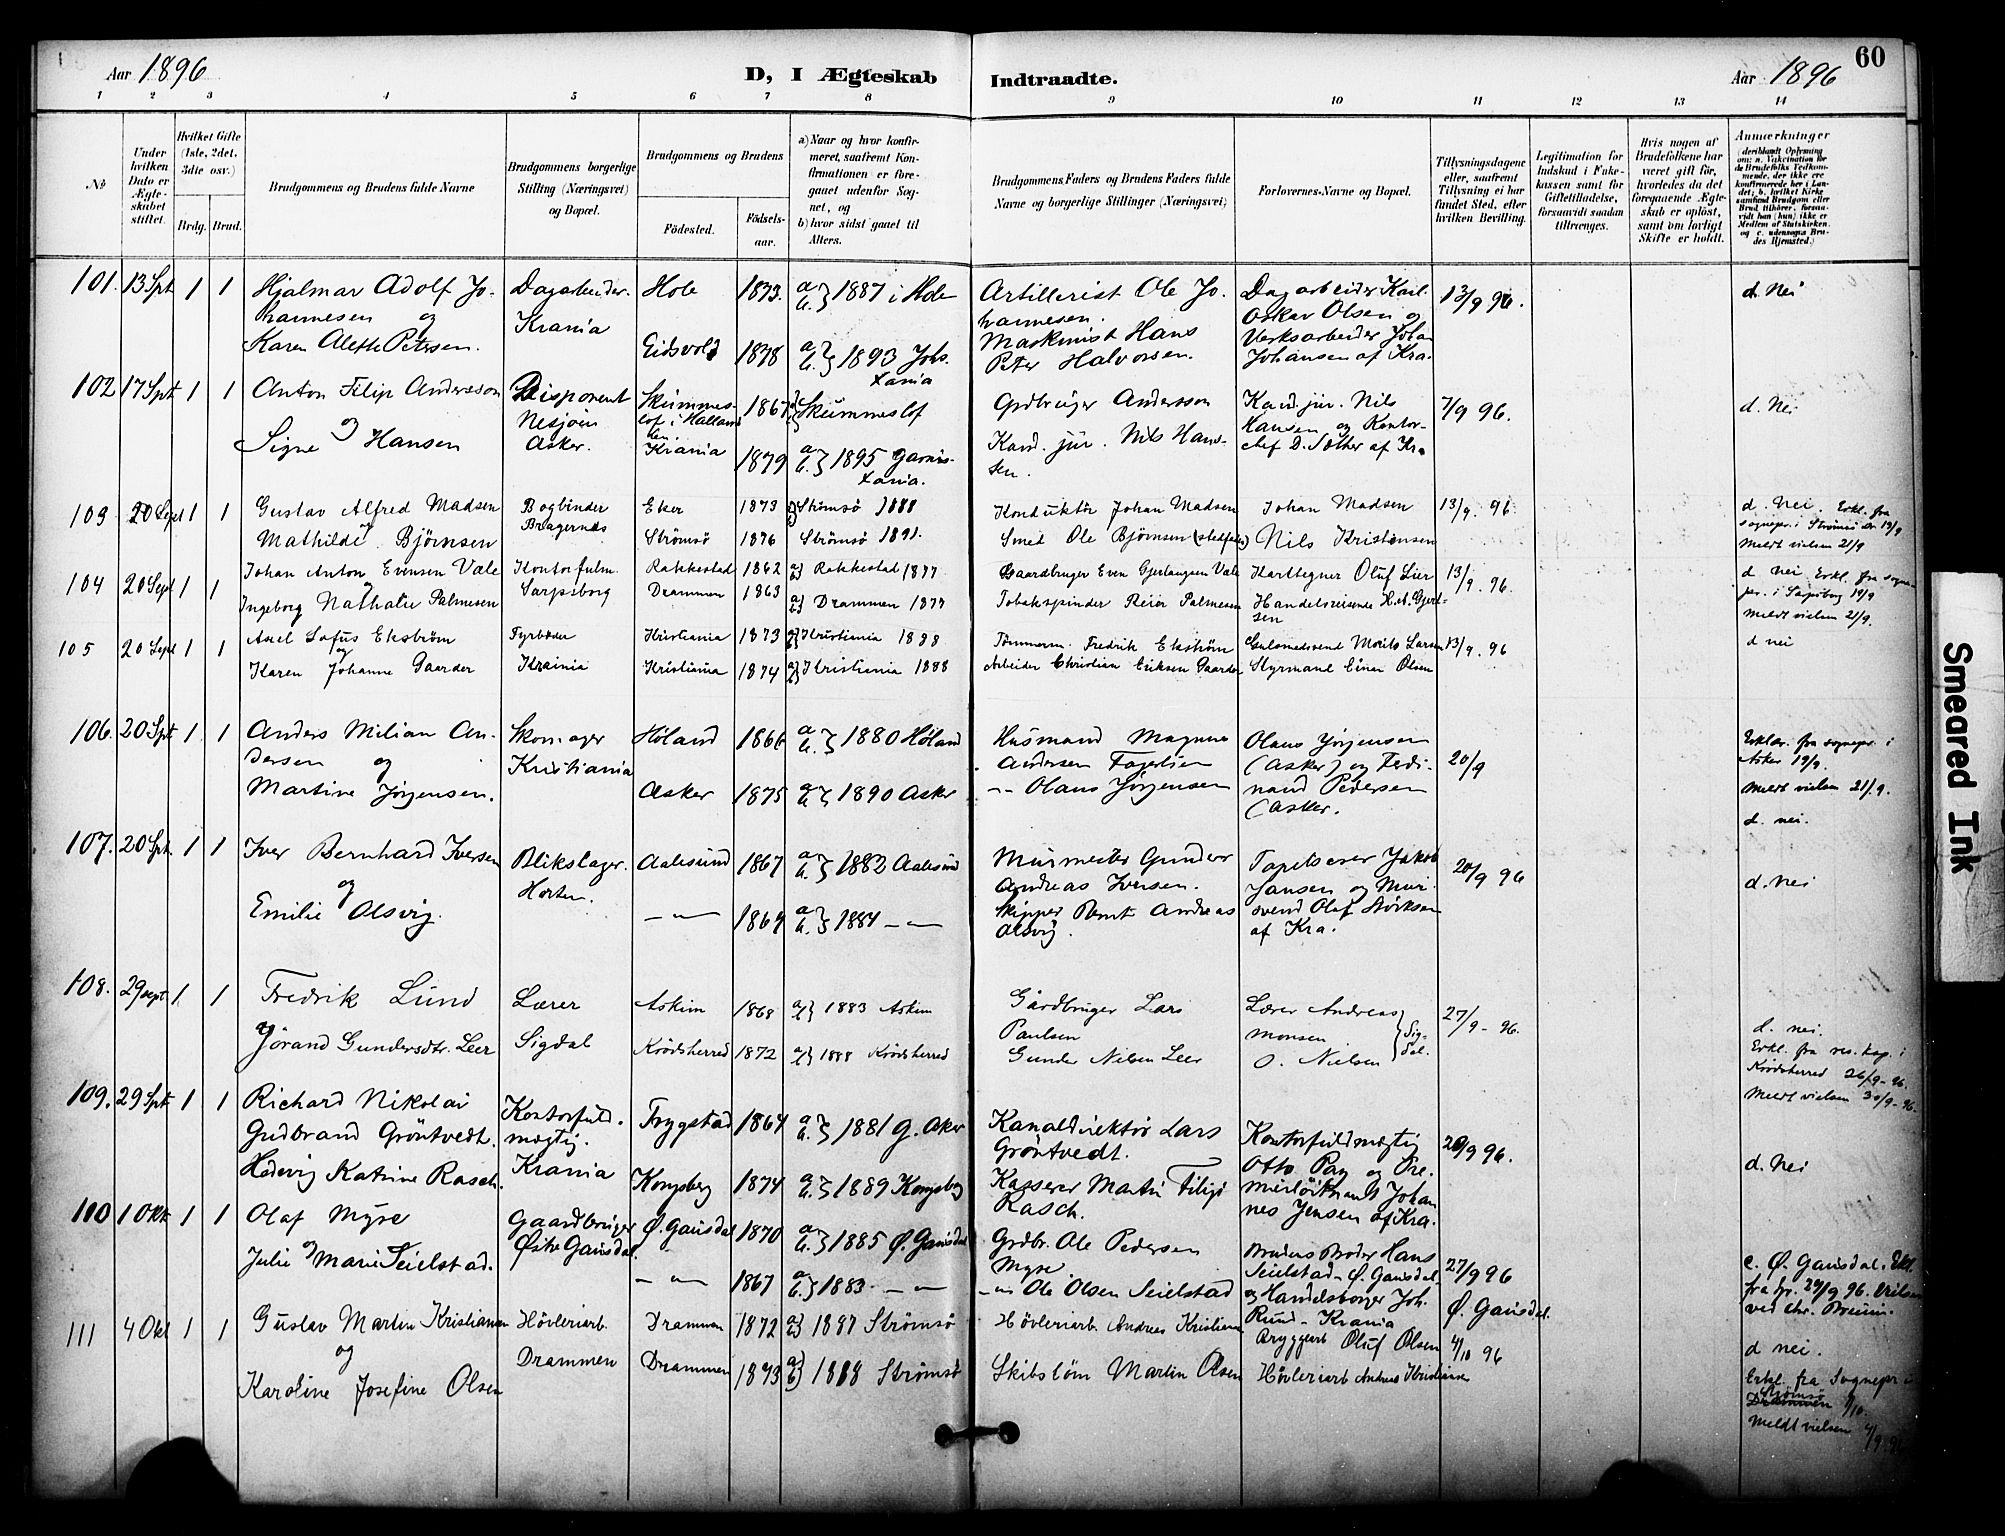 Aar 1896
D, I Ægteskab
Indtraadte.
Aar 1896
60
1 2 3 4 5 6 7 8 9 10 11 12 13 14
No
Under hvilken Dato er Ægteskabet stiftet.
Hvilket Gifte (1ste, 2det, 3dte osv.)
Brdg. Brud.
Brudgommens og Brudens fulde Navne
Brudgommens borgerlige Stilling (Næringsvei) og Bopæl.
Brudgommens og Brudens
Fødested.
Fødselsaar.
a) Naar og hvor konfirmeret, saafremt Konfirmationen er foregaaet udenfor Sognet, og
b) hvor sidst gaaet til Alters.
Brudgommens Faders og Brudens Faders fulde Navne og borgerlige Stillinger (Næringsvei)
Forlovernes Navne og Bopæl.
Tillysningsdagene eller, saafremt Tillysning ei har fundet Sted, efter hvilken Bevilling.
Legitimation for Indskud i Enkekassen samt for Giftetilladelse, forsaavidt saadan tiltrænges.
Hvis nogen af Brudefolkene har været gift før, hvorledes da det foregaaende Ægteskab er opløst, samt om lovligt Skifte er holdt.
Anmærkninger
101. 13 Spt 1 1
Hjalmar Adolf Johannesen og
Karen Alette Petersen.
Dagarbeider.
Krania
Hole 1873. a b} 1887 i Hole
Eidsvold 1878 a b} 1893 Johs. Xania
Artillerist Ole Johannesen.
Maskinist Hans Peter Halvorsen.
Dagarbeider Karl Oskar Olsen og
Verksarbeider Johan Johansen af Kra.
13/9 96.
d. Nei
102 17 Spt 1 1
Anton Filip Andersson
og
Signe Hansen
Disponent
Nesøien
Asker.
Skummeslöf i Halland
Krania
1867 Skummeslöf
1879 a b} 1895 Garnis. Xania.
Grdbruger Andersson
Kand. jur. Nils Hansen.
Kand. jur. Nils Hansen og Kontorchef D. Sæther af Kra
7/9 96.
d. Nei
103 20 Sept 1 1
Gustav Alfred Madsen
og
Mathilde Björnsen
Bogbinder
Bragernæs
Eker 1873 Strømsø 1888
Strømsö 1876 Strømsø 1891.
Konduktör Johan Madsen
Smed Ole Björnsen (stedfader)
Johan Madsen
Nils Kristensen
13/9. 96
d. Nei. Erkl. fra
sognepr. i Strømsø 19/9
Meldt vielsen 21/9
104 20 Sept 1 1
Johan Anton Evensen Vale
Ingeborg Nathalie Palmesen
Kontorfulm.
Sarpsborg
Rakkestad 1862 a) Rakkestad 1877
Drammen 1863 a) Drammen 1877
Gaardbruger Even Gjerlaugsen Vale
Tobakspinder Reier Palmesen
Karttegner Oluf Lier
Handelsreisende H. A. Gjertsen
13/9. 96
d nei Erkl. fra sognepr. i Sarpsborg 19/9
Meldt vielsen 21/9.
105 20 Sept 1 1
Axel Sofus Ekström
og
Karen Johanne Gaarder
Fyrböder
Kristiania 1873 Kristiania 1888
Kristiania 1874 Kristiania 1888
Tömmerm. Fredrik Ekström
Arbeider Christian Eriksen Gaarder
Gulsmedsvend Morits Larsen
Styrmand Einar Olsen
13/9. 96
d nei
106. 20 Spt 1 1
Anders Milian Andersen og
Martine Jörgensen.
Skomager
Kristiania
Höland 1866 a b} 1880 Höland
Asker 1875 a b} 1890 Asker
Husmand Magnus Andersen Fagerlien
-"- Olaus Jörgensen
Olaus Jörgensen
(Asker) og Ferdinand Pedersen
(Asker.
20/9
Erklær. fra sognepr. i
Asker 19/9.
Meldt vielsen 21/9.
d. nei.
107. 20 Spt. 1 1
Iver Bernhard Iversen
og
Emilie Olsvig.
Blikslager.
Horten.
Aalesund 1867 a b} 1882 Aalesund
-"- 1869 a b} 1884 -"-
Murmester Gunder Andreas Iversen.
Skipper Bernt Andreas Olsvig.
Tapetserer Jakob Jansen og Mursvend Olaf Störksen af Kra.
20/9 96
d. Nei
108. 29 sept. 1 1
Fredrik Lund
og
Jörand Gundersdtr. Leer
Lærer
Sigdal
Askim 1868 a/b} 1883 Askim
Krödsherred 1872 a/b} 1888 Krödsherred
Gårdbruger Lars
Paulsen
Gunder Nilsen Leer
Lærer Andreas
Monsen
O. Nielsen } Sigdal.
27/9 - 96.
d. nei.
Erkl. fra res. kap. i
Krödsherred 26/9 - 96.
Meldt vielsen 30/9 - 96.
109. 29 Spt. 1 1
Richard Nikolai
Gudbrand Gröntvedt.
Hedevig Katrine Rasch.
Kontorfuldmægtig.
Krania
Trygstad 1864 a b} 1881 G. Aker
Kongsberg 1874 a b} 1889 Kongsberg
Kanaldirektör Lars
Gröntvedt.
Kasserer Martin Filip
Rasch.
Kontorfuldmægtig
Otto Pay og Premierlöitnant Johannes Jensen af Kra.
20/9 96.
d. Nei
110 1 Okt 1 1
Olaf Myre
og
Julie Marie Seielstad.
Gaardbruger
Østre Gausdal.
Ø. Gausdal 1870 a b} 1885 Ø. Gausdal
-"- 1867 a b} 1883 -"-
Grdbr. Ole Pedersen
Myre
-"- Ole Olsen Seielstad
Brudens Broder Hans
Seielstad - Ø. Gausdal
og Handelsborger Joh.
Rund - Krania
27/9 96
Ø. Gausdal.
c. Ø. Gausdal. Erkl.
fra spr. 29/9 96. Vielsen
ved chr. Bruun.
111 4 Okt 1 1
Gustav Martin Kristiansen
og
Karoline Josefine Olsen
Hövleriarb.
Drammen
Drammen 1872 a) 1887 Strømsø
Drammen 1873 a) 1888 Strømsø
Hövleriarb. Andreas Kristiansen
Skibstöm Martin Olsen
Bryggearb Oluf Olsen
Hövleriarb Andreas Kristiansen
4/10 96
d nei.
Erkl. fra Sognepr i
Strömsö
Drammen 3/10.
Meldt vielsen
Smeared Ink